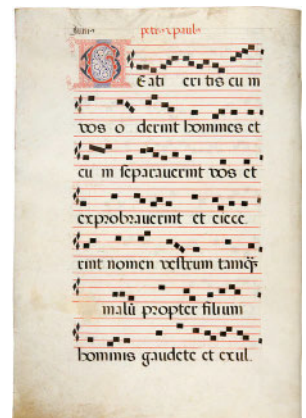 Iuni petri & pauli
Beati eri tis cu m
vos o derint homines et
cu m separaverint vos et
exprobraverint et eiece
rint nomen vestrum tamq̃
malũ propter filium
hominis gaudete et exul